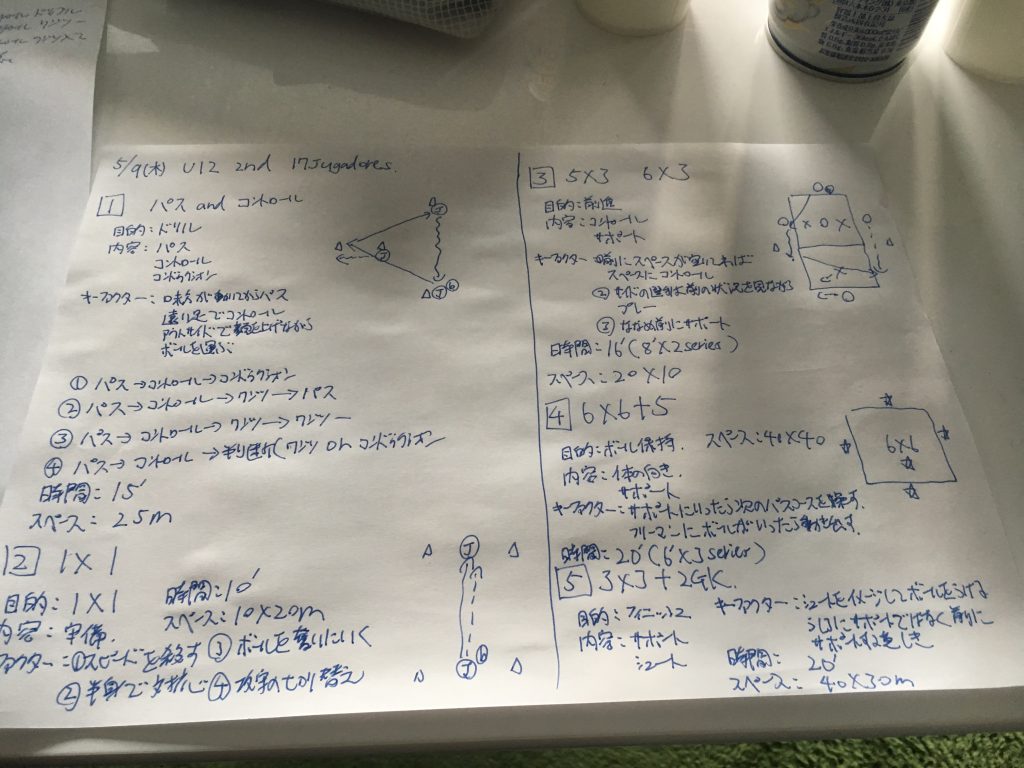 5/9(木) U12 2nd 17Jugadores.
1 パス and コントロール
目的: ドリル
内容: パス
コントロール
コンドゥクシオン
キーファクター: ①味方が動いてからパス
遠い足でコントロール
アウトサイドで顔を上げながら
ボールを運ぶ
① パス→コントロール→コンドゥクシオン
② パス→コントロール→ワンツー→パス
③ パス→コントロール→ワンツー→ワンツー
④ パス→コントロール→(ワンツ or コンドゥクシオン
時間: 15'
スペース: 25m
2 1×1
目的: 1×1 時間: 10'
内容: 守備. スペース: 10×20m
ファクター: ①スピードを殺す ③ボールを奪いにいく
②半身で対応 ④攻守の切り替え
3 5×3 6×3
目的: 前進
内容: コントロール
サポート
キーファクター ①前にスペースが空いてれば
スペースにコントロール
②サイドの選手は前の状況を見ながら
プレー
③ななめ前にサポート
時間: 16'(8'×2series)
スペース: 20×10
4 6×6+5
目的: ボール保持. スペース: 40×40
内容: 体の向き.
サポート
キーファクター: サポートにいったら次のパスコースを探す.
フリーマンにボールがいったら動き出す.
時間: 20'(6'×3series)
6×6
5 3×3+2GK.
目的: フィニッシュ
内容: サポート
シュート
キーファクター: シュートをイメージしてボールをうける
うしろにサポートではなく前に
サポートする意しき
時間: 20'
スペース: 40×30m